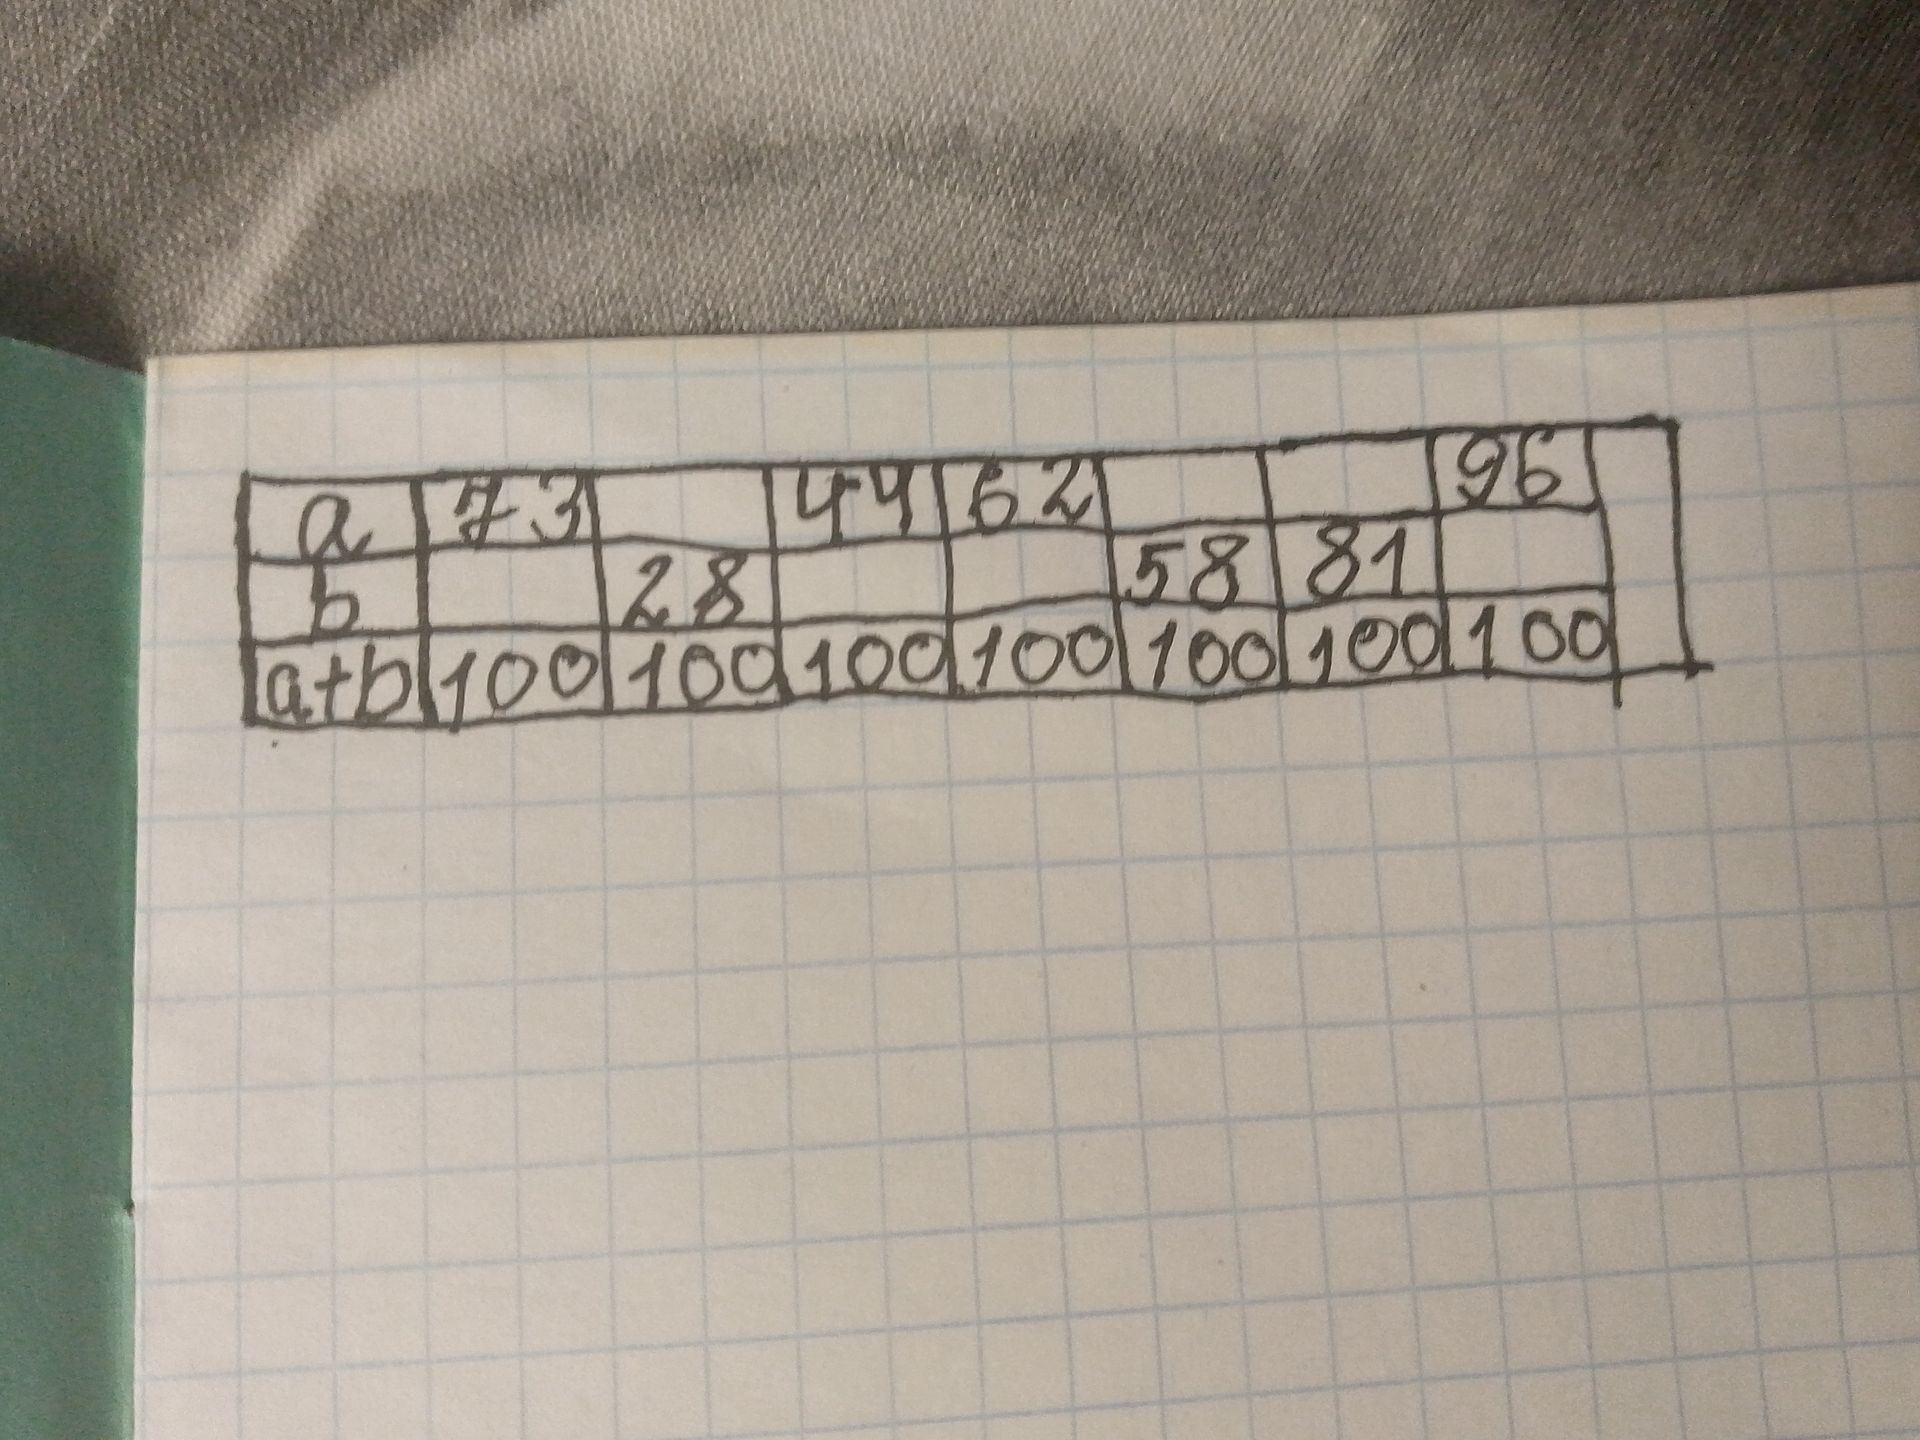 a 73 44 62 96
b 28 58 81
a+b 100 100 100 100 100 100 100